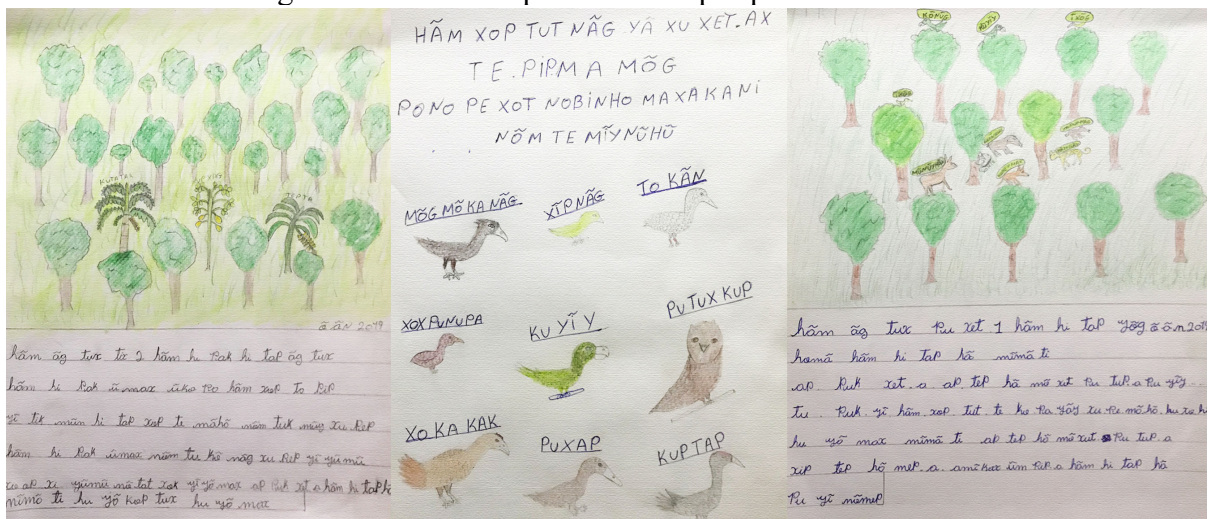 KUTATAK
ã ãn 2019
hãm ãg tux tix 2 hãm hi Pak hi tap ãg tux
hãm hi Pak ũmax ũkopo hãm xop to Pip
yĩ tik mũn hi tap xop te mõhõ nõm tuk mũg xu Pip
hãm hi Pak ũmax nõm tu nãg xu Pip yĩ yũmũ
xi yũmũ nõ tat xak yĩ yõ max ap Puk xet a hãm hi tap
mĩmõ ti hu yõ kop tux hu yõ max
HÃM XOP TUT NÃG YÃ XU XET.AX
TE.PIPM A MÕG
PONO PE XOT NOBINHO MAXAKANI
NÕM TE MĨYNŨHŨ
MÕGMÕKANÃG
XĨPNÃG
TO KÃN
XOXPUNUPA
KU YĨY
PUTUXKUP
XOKA KAK
PUXAP
KUPTAP
KÕMUG
KUYĨY
hãm ãg tux Pu xet 1 hãm hi tap yõg ã ãn 2019
hamã hãm hi tap hã mĩmã ti
ap. Puk xet.a ap. tep hã mõ xut Pu tup.a Pu yĩy
tu Puk yĩ hãm.xop tut.te ho Pa yõg xu Pe mõhõ.hu xe
hu yõ max mĩmã ti ap tep hõ mõ xut Pu tup.a
xip tep hõ mep.a.amĩkax ũm Pip.a hãm hi tap hã
Pu yĩ nõmep